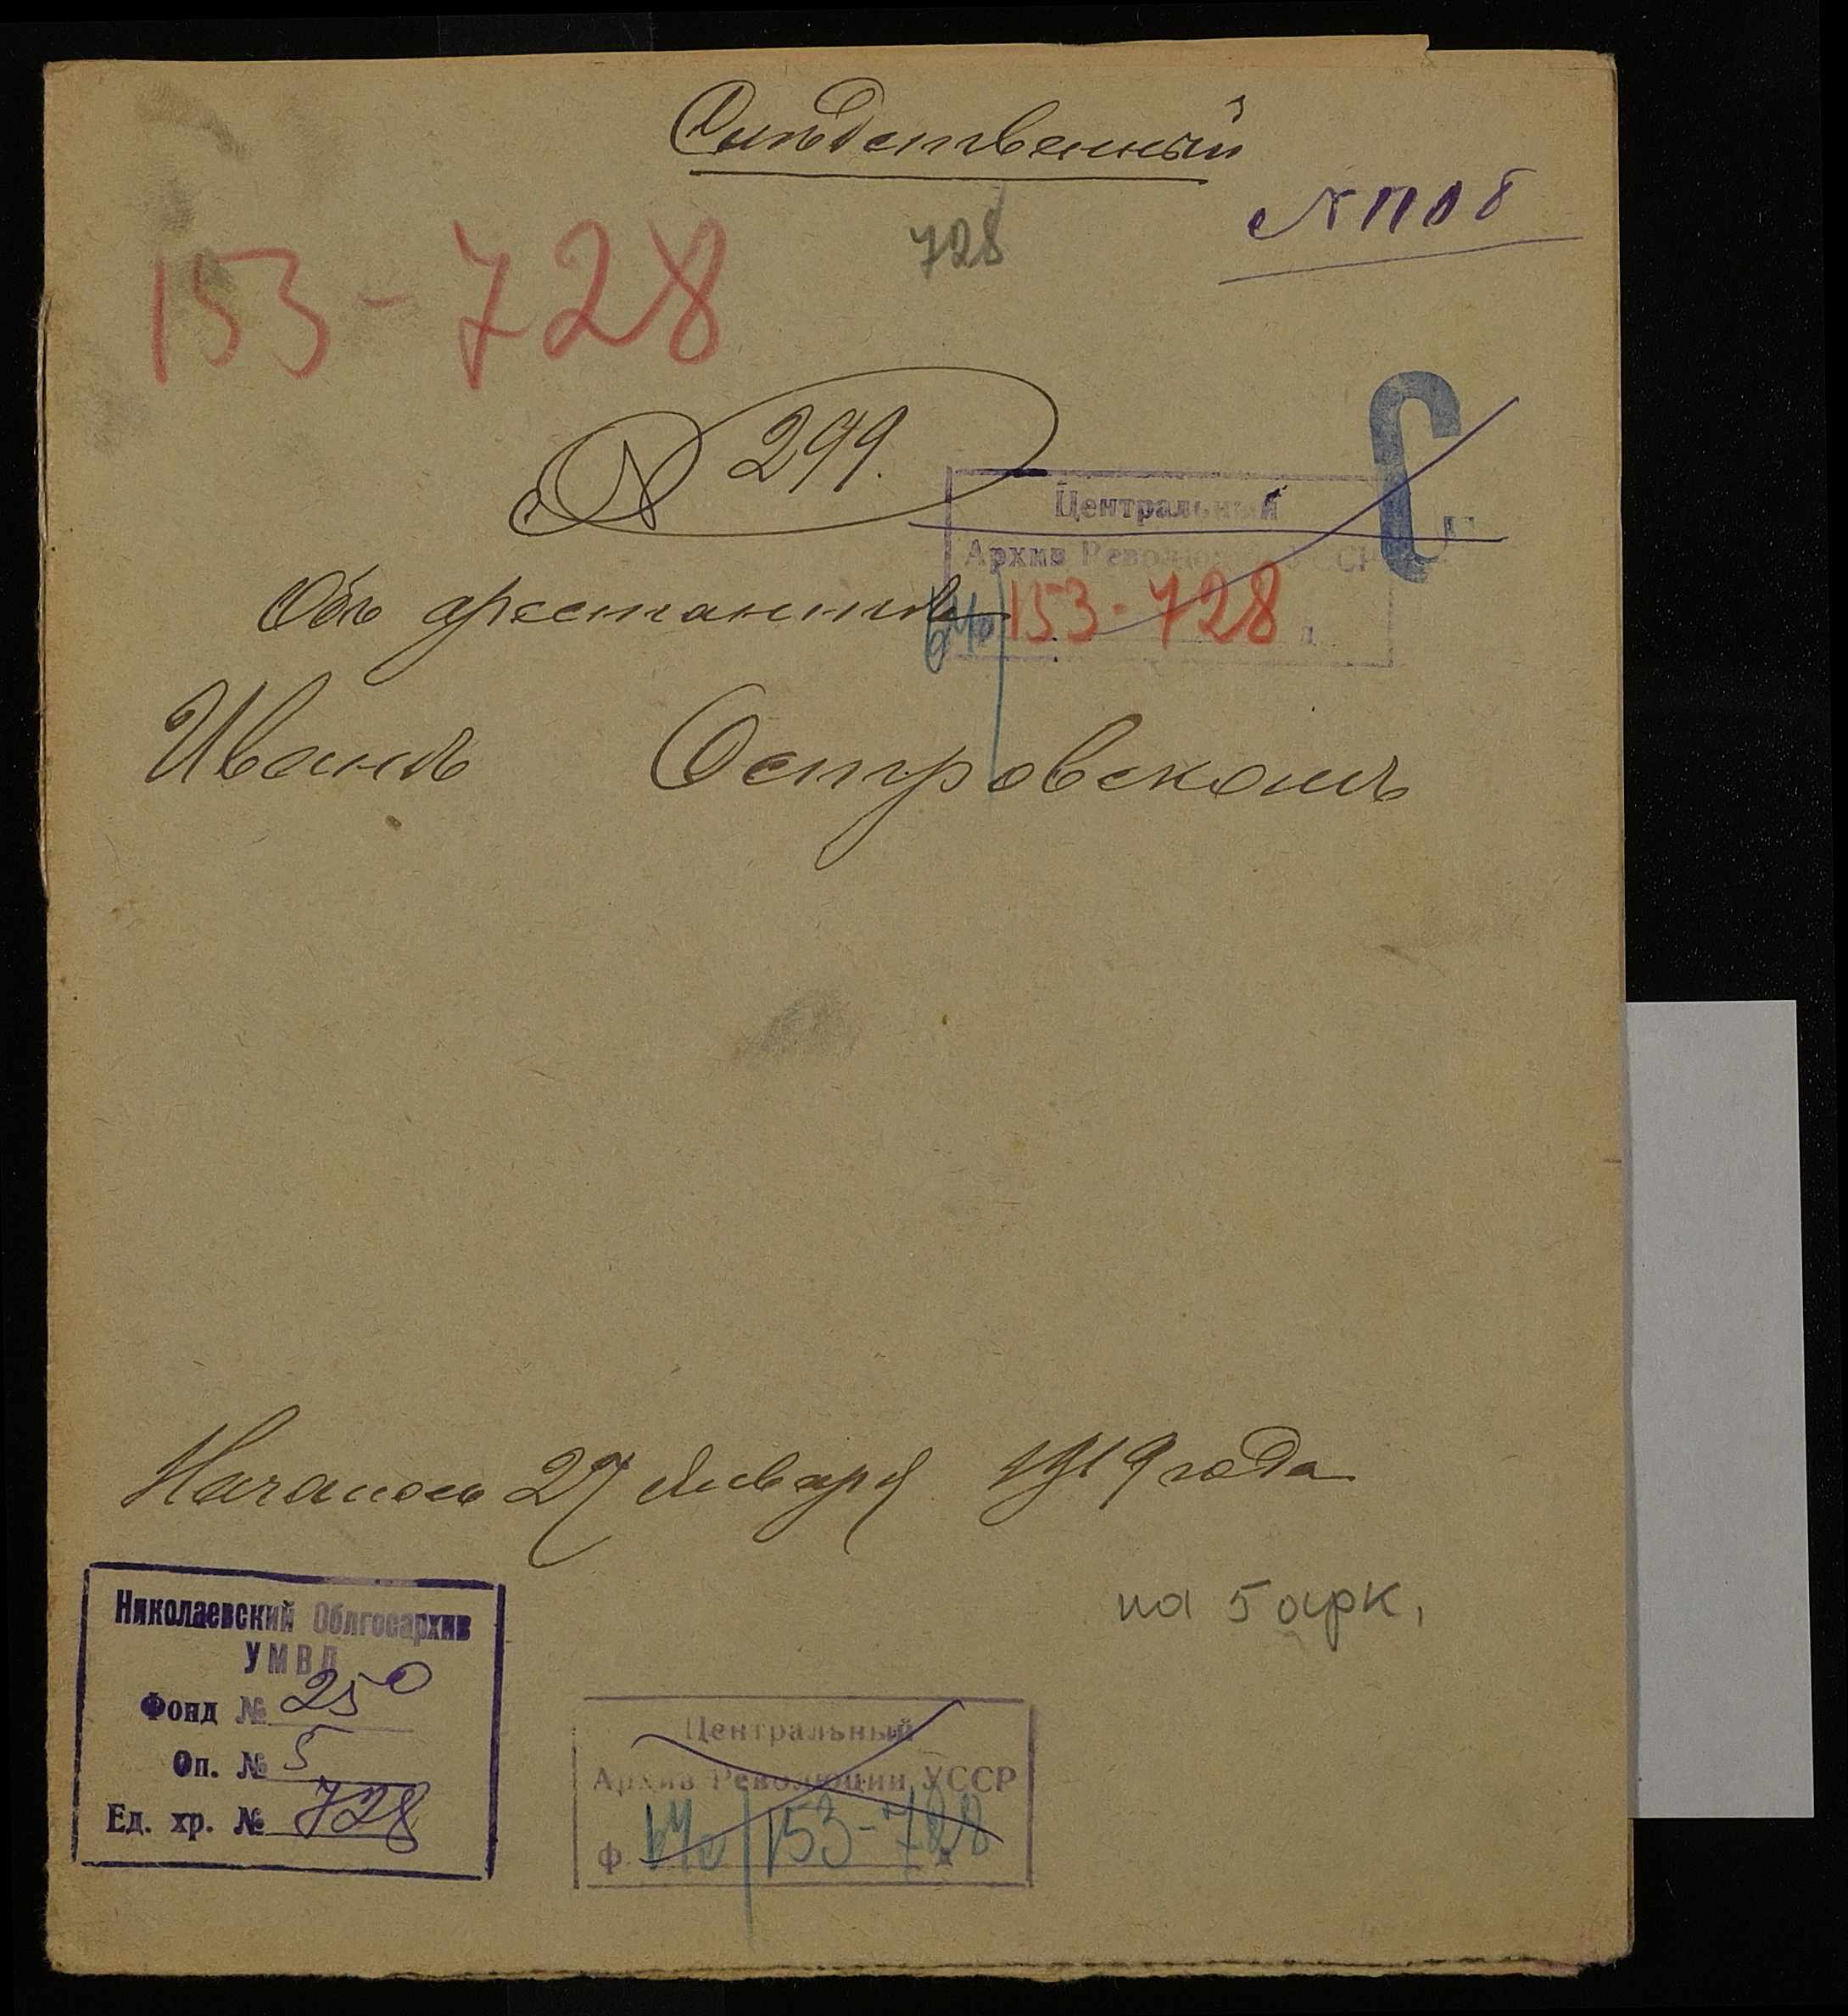 Слѣдственный
№ 1108
153-728
728
№ 299.
Центральный
Архив Революции УССР
153-728
Объ арестантѣ
Иванѣ Островскомъ
Началось 27 Января 1919 года
на 5 арк.
Николаевский Облгосархив
УМВД
Фонд № 250
Оп. № 5
Ед. хр. № 728
Центральный
Архив Революции УССР
Ф. 153-728